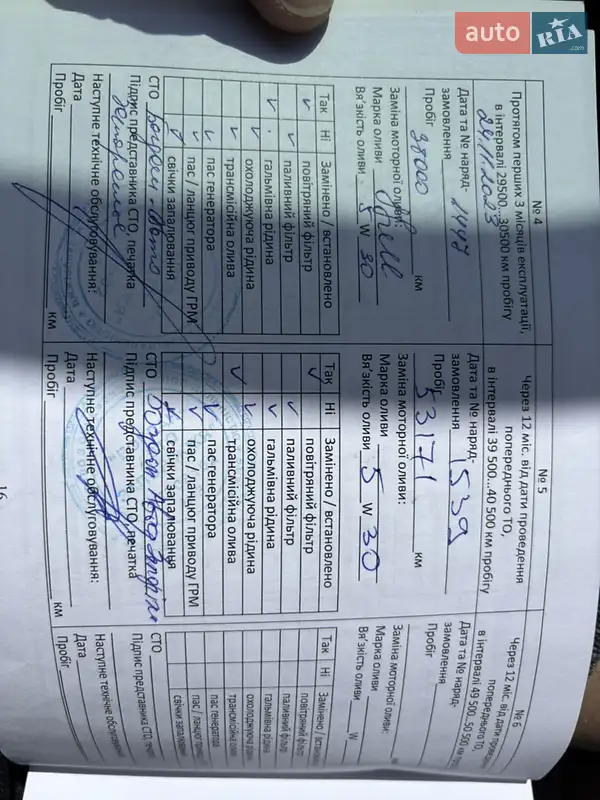 auto RIA.com
№ 4
Протягом перших 3 місяців експлуатації,
в інтервалі 29500...30500 км пробігу
24.11.2023
Дата та № наряд-
замовлення 1447
Пробіг 37000 км
Заміна моторної оливи:
Марка оливи Shell
Вя'зкість оливи 5 W 30
Так Ні Замінено / встановлено
повітряний фільтр
паливний фільтр
гальмівна рідина
охолоджуюча рідина
трансмісійна олива
пас генератора
пас / ланцюг приводу ГРМ
свічки запалювання
СТО Богдан-Авто
Запоріжжя
Підпис представника СТО, печатка
Наступне технічне обслуговування:
Дата
Пробіг км
№ 5
Через 12 міс. від дати проведення
попереднього ТО,
в інтервалі 39 500...40 500 км пробігу
Дата та № наряд-
замовлення 1539
Пробіг 53171 км
Заміна моторної оливи:
Марка оливи
Вя'зкість оливи 5 W 30
Так Ні Замінено / встановлено
повітряний фільтр
паливний фільтр
гальмівна рідина
охолоджуюча рідина
трансмісійна олива
пас генератора
пас / ланцюг приводу ГРМ
свічки запалювання
СТО Богдан Авто
Підпис представника СТО, печатка
Наступне технічне обслуговування:
Дата
Пробіг км
№ 6
Через 12 міс. від дати
попереднього ТО,
в інтервалі 49 500...50 500 км
Дата та № наряд-
замовлення
Пробіг
Заміна моторної оливи:
Марка оливи
Вя'зкість оливи W
Так Ні Замінено /
повітряний фільтр
паливний фільтр
гальмівна рідина
охолоджуюча рідина
трансмісійна
пас генератора
пас / ланцюг
свічки
СТО
Підпис представника СТО,
Наступне технічне
Дата
Пробіг
16